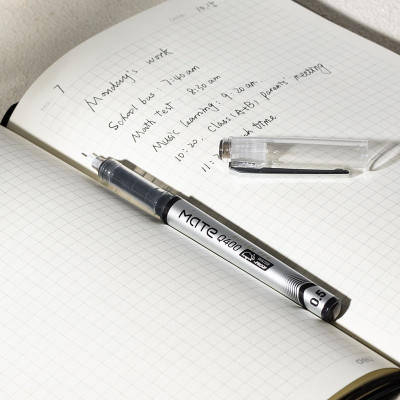 10.15
7
Monday's work
School bus 7:40 am
Math test 8:30 am
Music learning: 9:20 am
10:20. Class(A+B) parents' meeting
11: time
MATE Q400
0.5